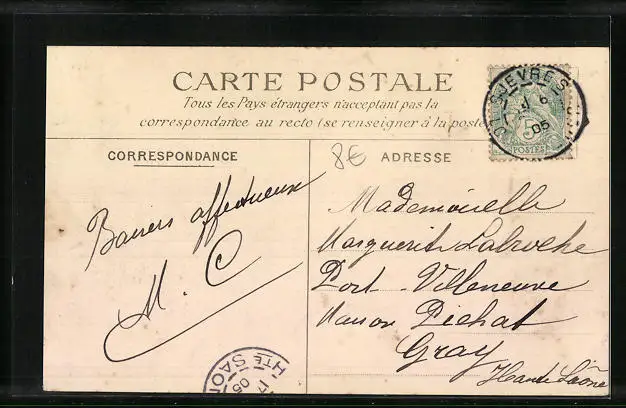 CARTE POSTALE
Tous les Pays étrangers n'acceptant pas la
correspondance au recto (se renseigner à la poste
CORRESPONDANCE
8€
ADRESSE
SEVRES
6
05
5
POSTES
Baisers affectueux
M. C
Mademoiselle
Marguerite Laroche
Port-Villeneuve
Maison Pichat
Gray
Haute Saône
HTE SAON
17
05